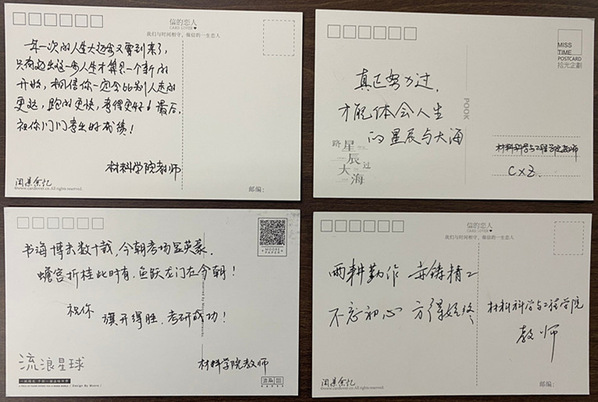 信的恋人
我们与时间相守,做信的一生恋人
年一次的人生大 又要到来了,
只有迈出这一步人生才算是一个新的
开始,相信你一定会比别人走的
更远,跑的更快,考得更好!最后
祝你们门门考出好成绩!
材料学院教师
邮编:
MISS
TIME
POSTCARD
拾光企劃
真正努力过,
才配体会人生
的星辰与大海
POOK
路
星
辰
过
大
海
材料科学与工程学院教师
CXZ
书海博术数十载,今朝考场显英豪.
蟾宫折桂此时有,鱼跃龙门在今朝!
祝你
旗开得胜,考研成功!
流浪星球
材料学院教师
信的恋人
我们与时间相守,做信的一生恋人
两耕勤作 亦铸精工
不忘初心 方得始终
材料科学与工程学院
教师
邮编: